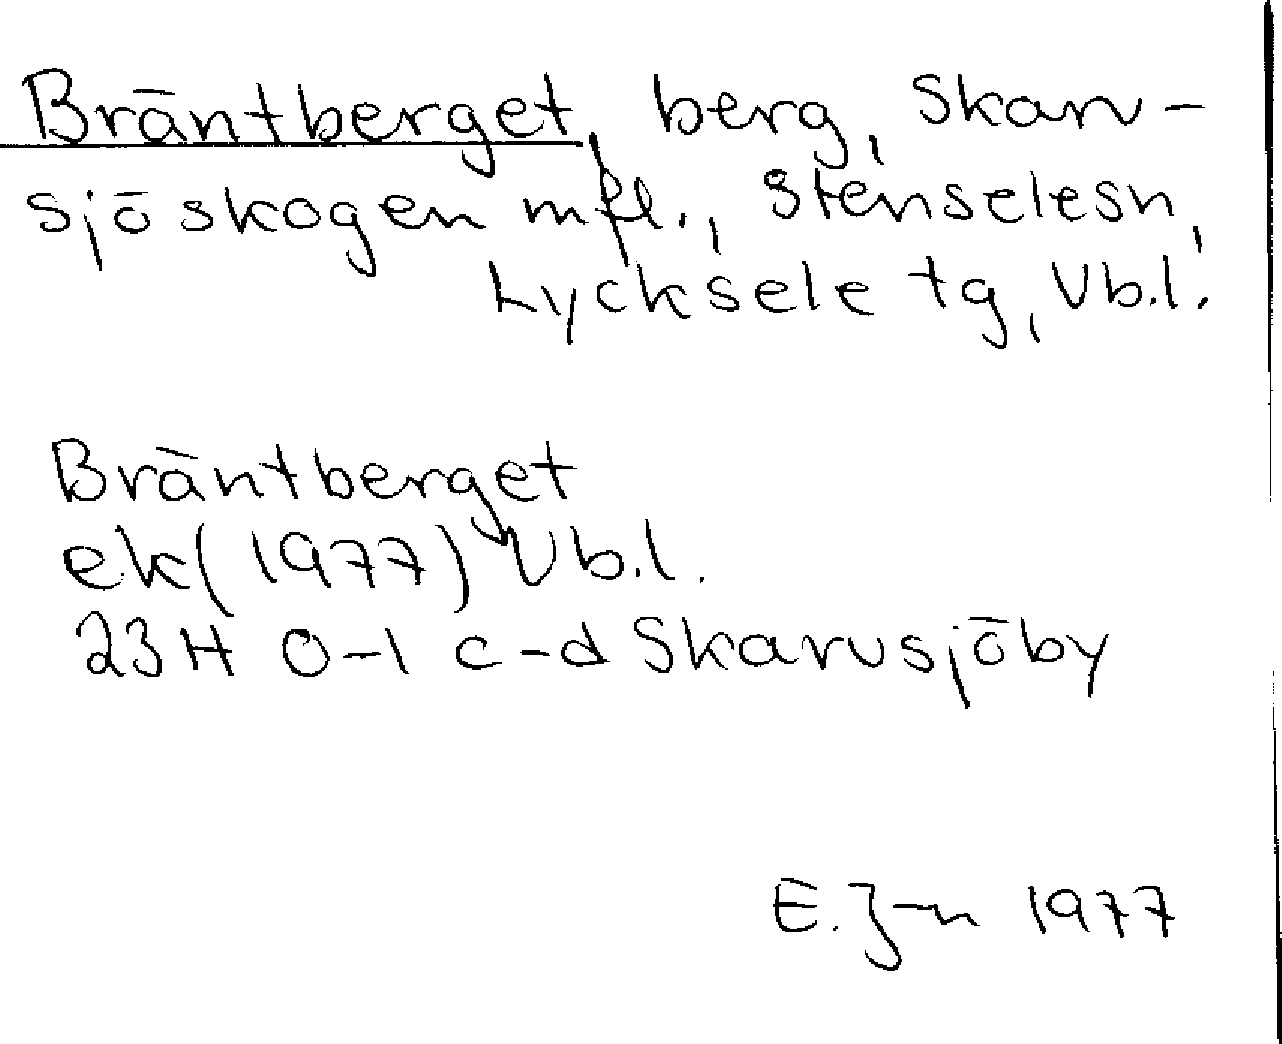 Bräntberget, berg, Skarv-
sjöskogen mfl., Stenselesn,
Lycksele tg, Vb.l.
Bräntberget
ek(1977) Vb.l.
23H 0-1 c-d Skarvsjöby
E.J-n 1977